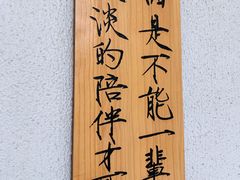 是不能一輩
淡的陪伴才